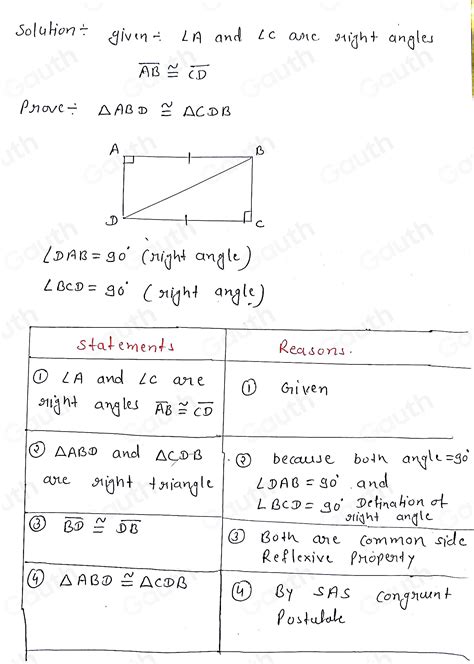 Solution ÷ given ÷ ∠A and ∠C are right angles
AB ≅ CD
Prove ÷ △ABD ≅ △CDB
A
B
D
C
∠DAB = 90° (right angle)
∠BCD = 90° (right angle)
Statements
Reasons.
① ∠A and ∠C are
right angles AB ≅ CD
① Given
② △ABD and △CDB
are right triangle
② because both angle = 90°
∠DAB = 90° and
∠BCD = 90° Defination of
right angle
③ BD ≅ DB
③ Both are common side
Reflexive Property
④ △ABD ≅ △CDB
④ By SAS congruent
Postulate
Gauth